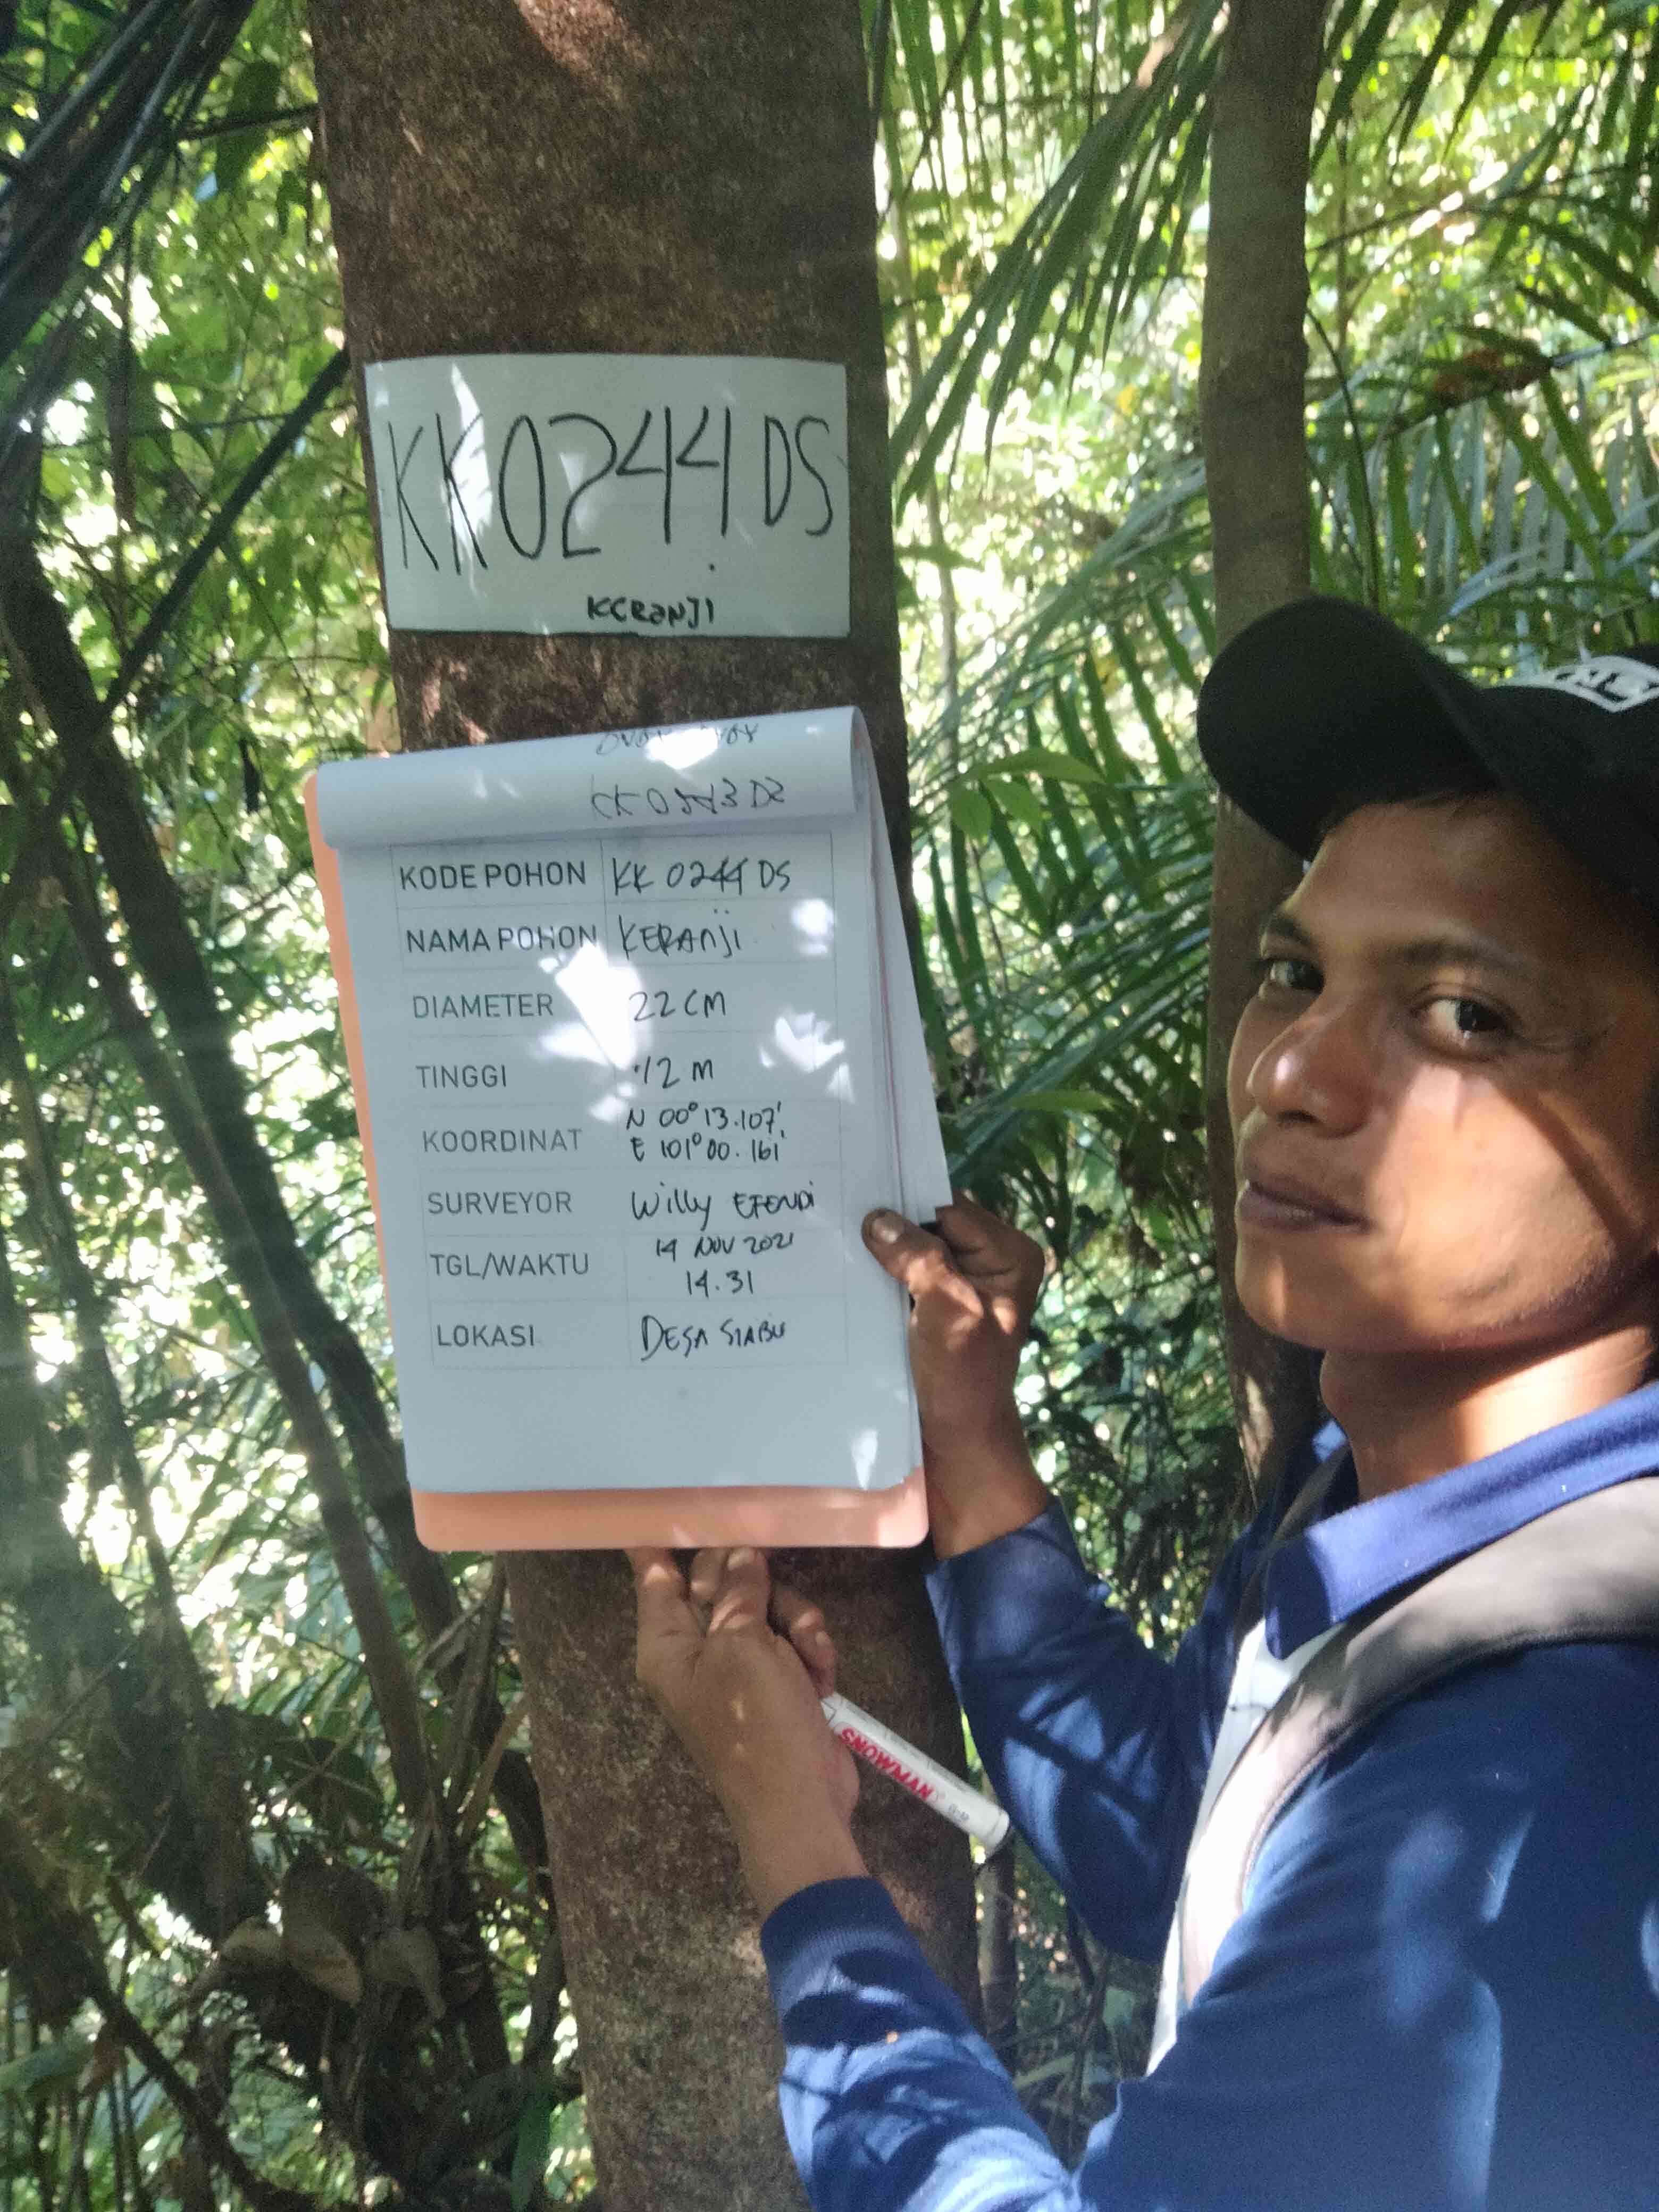 KK0244DS
KERANJI
KK0243DS
KODE POHON KK 0244 DS
NAMA POHON KERANJI
DIAMETER 22 CM
TINGGI 12 M
KOORDINAT N 00° 13.107'
E 101° 00. 161'
SURVEYOR Willy EFENDI
TGL/WAKTU 14 NOV 2021
14.31
LOKASI DESA SIABU
SNOWMAN